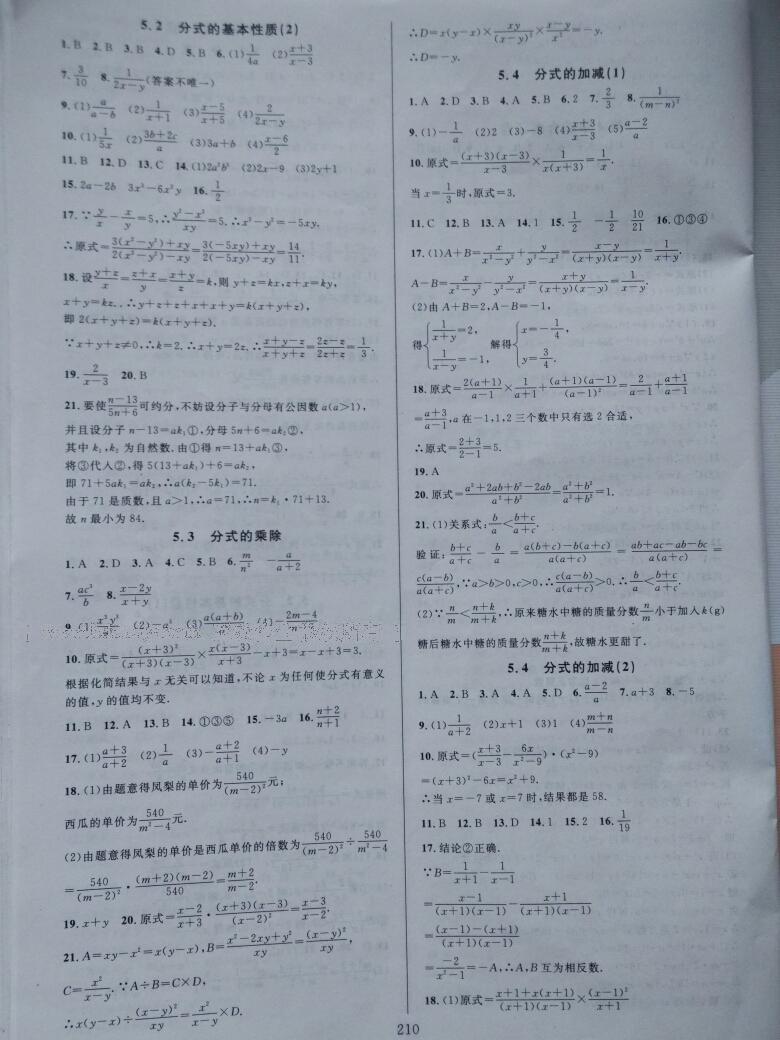 5.2 分式的基本性质(2)
1. B 2. B 3. B 4. D 5. B 6. (1) 1/(4a) (2) (x+3)/(x−3)
7. 3/10 8. 1/(2x−y) (答案不唯一)
9. (1) a/(a−b) (2) 1/(x+1) (3) (x−5)/(x+5) (4) 2/(2x−y)
10. (1) 1/(5x) (2) (3b+2c)/a (3) 3a+b (4) (x−6)/2
11. B 12. D 13. C 14. (1) 2a²b³ (2) 2x−9 (3) 2y+1
15. 2a−2b 3x³−6x²y 16. 1/2
17. ∵ y/x − x/y =5, ∴ (y²−x²)/(xy) =5. ∴x²−y²=−5xy.
∴原式= (3(x²−y²)+xy)/(2(x²−y²)−xy) = (3(−5xy)+xy)/(2(−5xy)−xy) = 14/11.
18. 设 (y+z)/x = (z+x)/y = (x+y)/z =k, 则 y+z=kx, z+x=ky,
x+y=kz. ∴y+z+z+x+x+y=k(x+y+z),
即 2(x+y+z)=k(x+y+z).
∵x+y+z≠0, ∴k=2. ∴x+y=2z. ∴ (x+y−z)/(x+y+z) = (2z−z)/(2z+z) = 1/3.
19. 2/(x−3) 20. B
21. 要使 (n−13)/(5n+6) 可约分,不妨设分子与分母有公因数 a(a>1),
并且设分子 n−13=ak₁①,分母 5n+6=ak₂②,
其中 k₁,k₂ 为自然数. 由①得 n=13+ak₁③,
将③代入②,得 5(13+ak₁)+6=ak₂,
即 71+5ak₁=ak₂, ∴a(k₂−5k₁)=71.
由于 71 是质数,且 a>1, ∴a=71, ∴n=k₁·71+13.
故 n 最小为 84.
5.3 分式的乘除
1. A 2. D 3. A 4. C 5. B 6. m/n² −a/(a+2)
7. ac³/b 8. (x−2y)/(x+y)
9. (1) x²y²/ (2) −a³ (3) a(a+b)/ (4) −(2m−4)/
10. 原式= (x+3)²/((x+3)(x−3)) × x(x−3)/(x+3) −x+3=3.
根据化简结果与 x 无关可以知道,不论 x 为任何使分式有意义
的值,y 的值均不变.
11. B 12. A 13. B 14. ①③⑤ 15. −3a 16. (n+2)/(n+1)
17. (1) (a+3)/(a+2) (2) 1/a (3) −(a+2)/(a+1) (4) −y
18. (1)由题意得凤梨的单价为 540/(m−2)² 元;
西瓜的单价为 540/(m²−4) 元.
(2)由题意得凤梨的单价是西瓜单价的倍数为 540/(m−2)² ÷ 540/(m²−4)
= 540/(m−2)² · (m+2)(m−2)/540 = (m+2)/(m−2).
19. x+y 20. 原式= (x−2)/(x+3) · (x+3)(x−3)/(x−2)² = (x−3)/(x−2).
21. A=xy−x²=x(y−x), B= (x²−2xy+y²)/(xy) = (x−y)²/(xy),
C= x²/(x−y). ∵A÷B=C×D,
∴x(y−x)÷ (x−y)²/(xy) = x²/(x−y) ×D.
∴D=x(y−x)× xy/(x−y)² × (x−y)/x² =−y.
∴D=−y.
5.4 分式的加减(1)
1. A 2. D 3. B 4. A 5. B 6. 2 7. 2/3 8. 1/(m−n)²
9. (1) −1/a (2) 2 (3) −8 (4) (x+3)/(x−3) (5) (a−2)/a
10. 原式= (x+3)(x−3)/(x−3) × 1/(x(x+3)) = 1/x.
当 x= 1/3 时,原式=3.
11. C 12. B 13. A 14. 1 15. 1/2 −1/2 10/21 16. ①③④
17. (1)A+B= x/(x²−y²) + y/(y²−x²) = (x−y)/((x+y)(x−y)) = 1/(x+y).
A−B= x/(x²−y²) − y/(y²−x²) = (x+y)/((x+y)(x−y)) = 1/(x−y).
(2)由 A+B=2,A−B=−1,
得{ 1/(x+y) =2, 1/(x−y) =−1, 解得{ x=−1/4, y= 3/4.
18. 原式= 2(a+1)/(a−1) × 1/(a+1) + (a+1)(a−1)/(a−1)² = 2/(a−1) + (a+1)/(a−1)
= (a+3)/(a−1), a 在−1,1,2 三个数中只有选 2 合适,
∴原式= (2+3)/(2−1) =5.
19. A
20. 原式= (a²+2ab+b²−2ab)/(a²+b²) = (a²+b²)/(a²+b²) =1.
21. (1)关系式: b/a < (b+c)/(a+c).
验证: (b+c)/(a+c) − b/a = (a(b+c)−b(a+c))/(a(a+c)) = (ab+ac−ab−bc)/(a(a+c)) =
c(a−b)/(a(a+c)), ∵a>b>0,c>0, ∴ c(a−b)/(a(a+c)) >0. ∴ b/a < (b+c)/(a+c).
(2)∵ n/m < (n+k)/(m+k), ∴原来糖水中糖的质量分数 n/m 小于加入 k(g)
糖后糖水中糖的质量分数 (n+k)/(m+k), 故糖水更甜了.
5.4 分式的加减(2)
1. A 2. B 3. A 4. A 5. D 6. (a−2)/a 7. a+3 8. −5
9. (1) 1/(a+2) (2) x+1 (3) 1 (4) (m+n)/(m−n)
10. 原式=( (x+3)/(x−3) − 6x/(x²−9) )·(x²−9)
=(x+3)²−6x=x²+9.
∴当 x=−7 或 x=7 时,结果都是 58.
11. B 12. B 13. D 14. 1 15. 2 16. 1/19
17. 结论②正确.
∵B= 1/(x+1) − 1/(x−1)
= (x−1)/((x+1)(x−1)) − (x+1)/((x+1)(x−1))
= ((x−1)−(x+1))/((x+1)(x−1))
= −2/(x²−1) =−A, ∴A,B 互为相反数.
18. (1)原式= (x+1+x(x+1))/((x+1)(x−1)) × (x−1)²/(x+1)
210